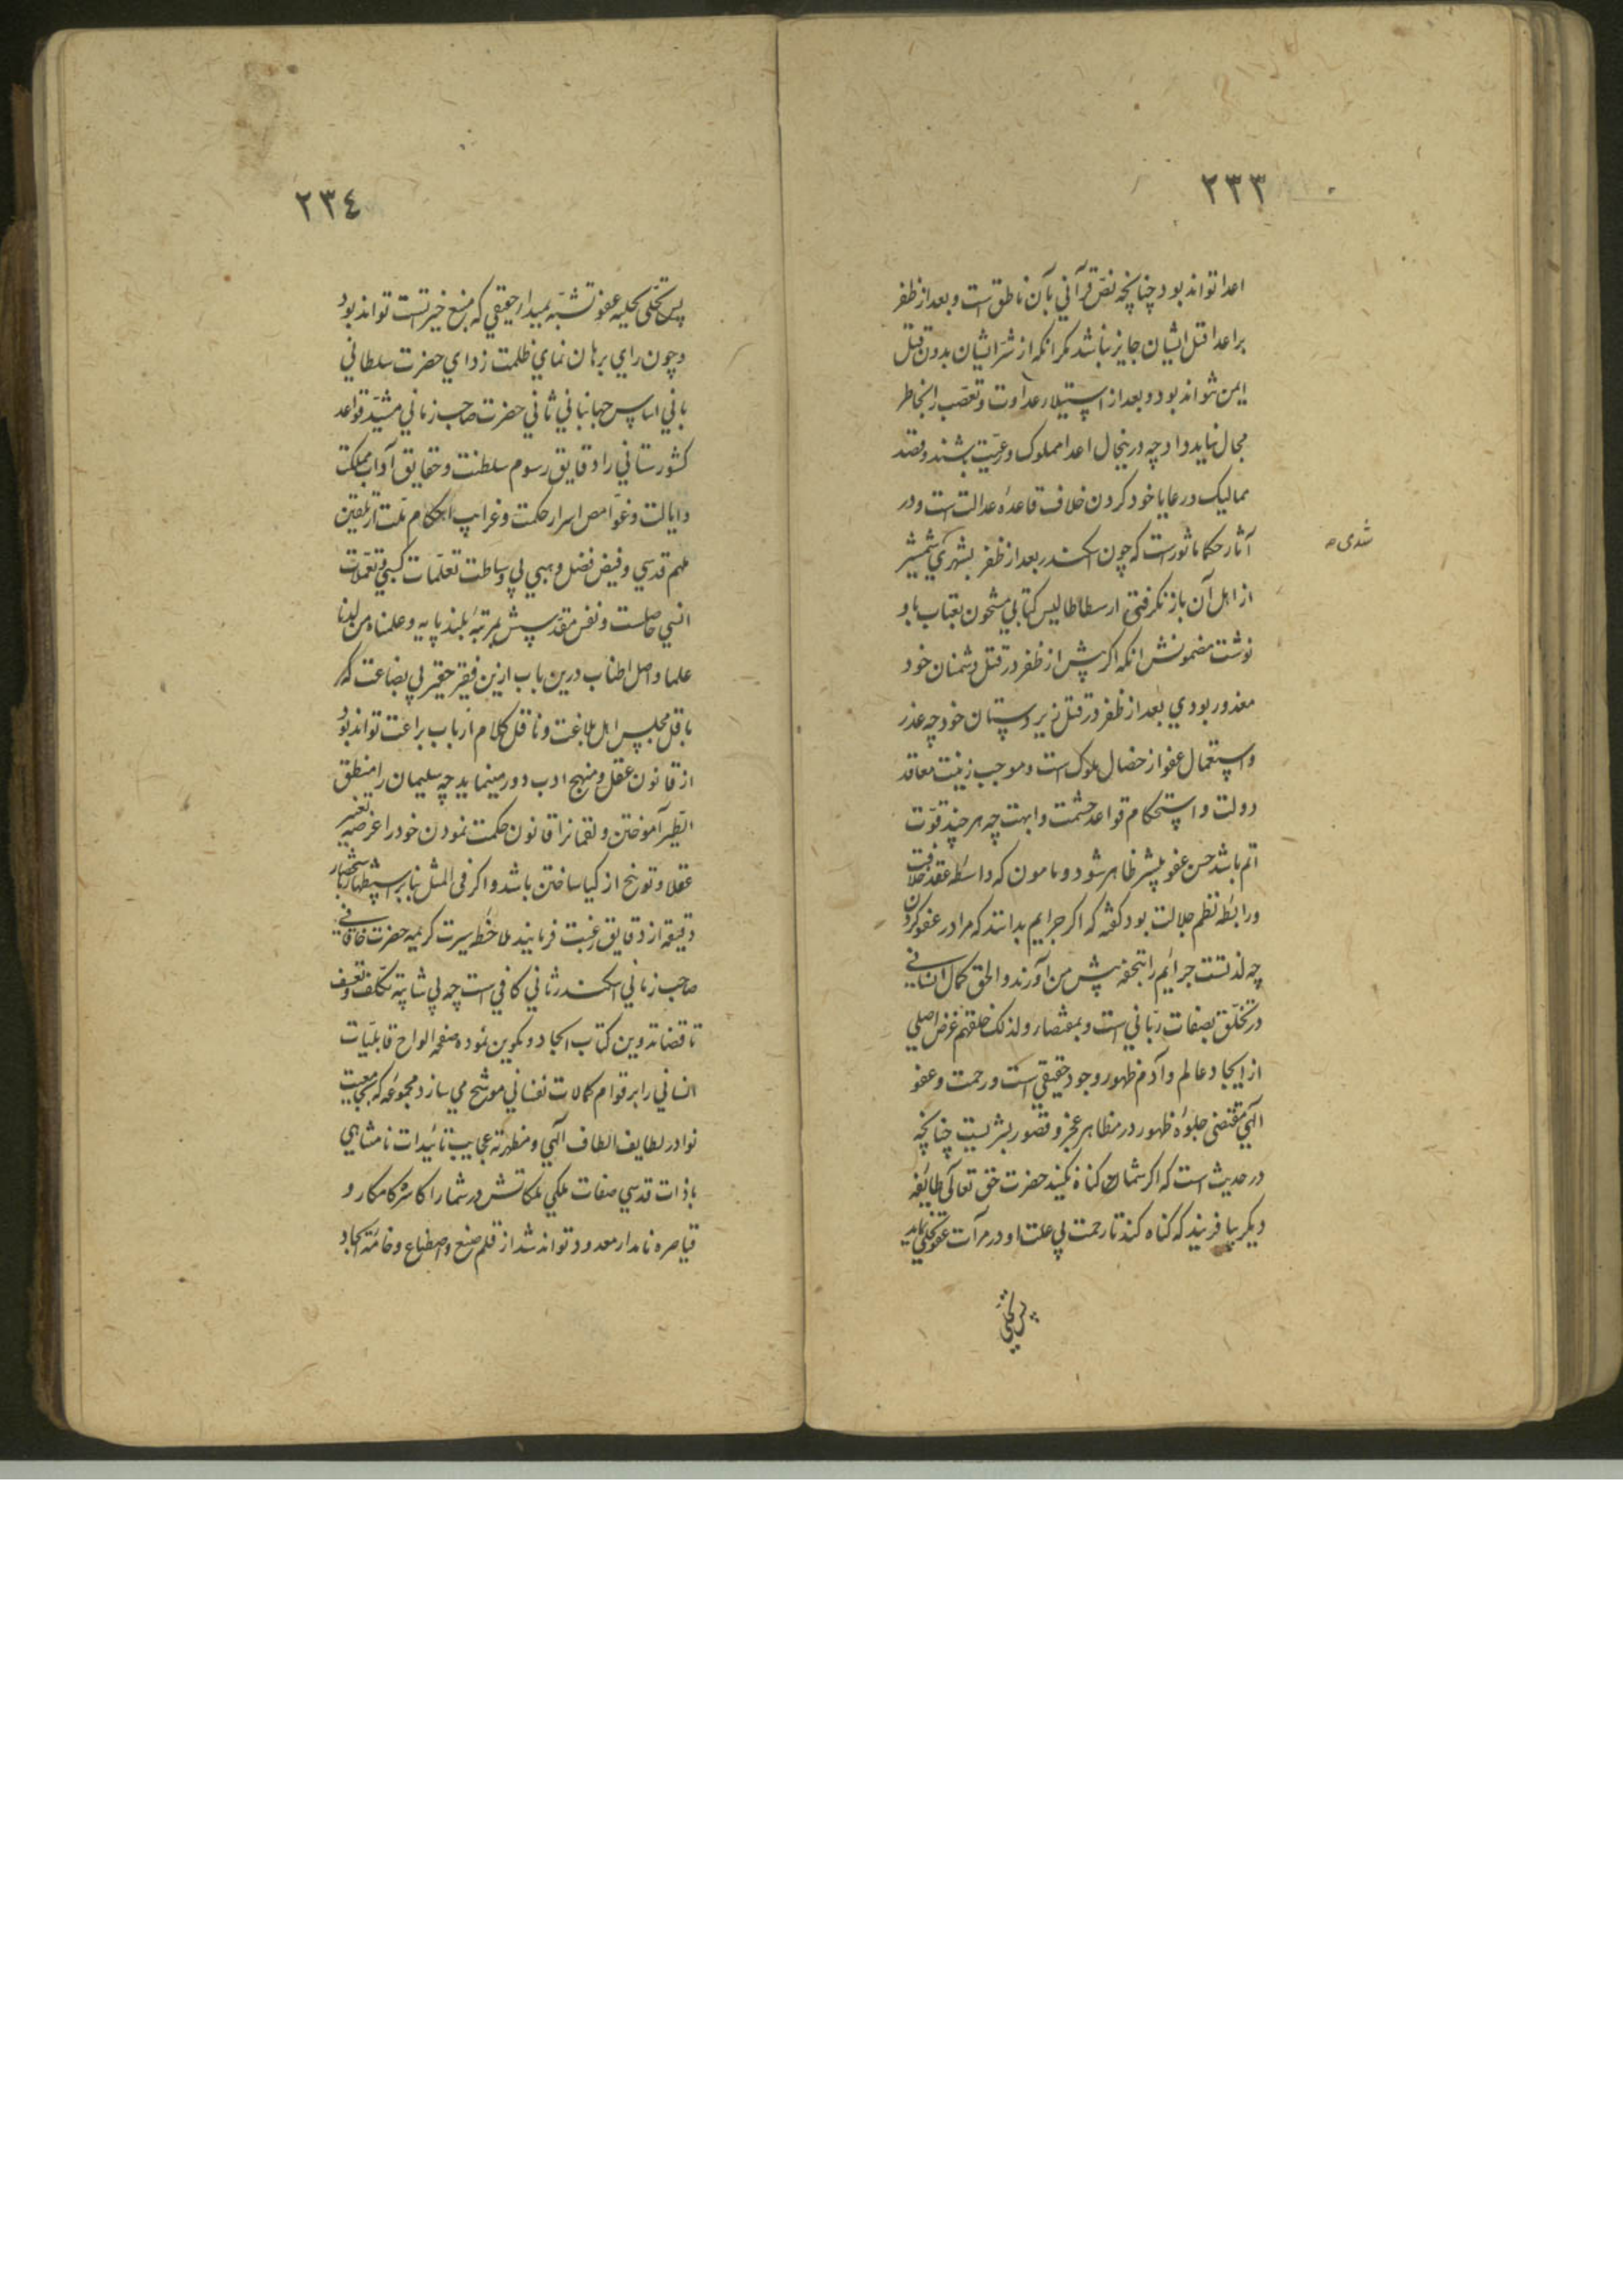 ٢٣٣
اعدا تواند بود چنانچه نصّ قرآنی بآن ناطق است و بعد از ظفر
بر اعدا قتل ایشان جایز نباشد مکر انکه از شرّ ایشان بدون قتل
ایمن نتواند بود و بعد از استیلا عداوت و تعصّب را بخاطر
مجال نباید داد چه درینحال اعدا مملوک و رعیّت باشند و قصد
ممالیک و رعایا خود کردن خلاف قاعدهٔ عدالت است و در
آثار حکما ماثورست که چون اسکندر بعد از ظفر بشهری شمشیر
شدی صح
از اهل آن باز نکرفتی ارسطاطالیس کتابی مشحون بعتاب باو
نوشت مضمونش انکه اکر پیش از ظفر در قتل دشمنان خود
معذور بودی بعد از ظفر در قتل زیردستان خود چه عذر
و استعمال عفو از خصال ملوک است و موجب زینت معاقد
دولت و استحکام قواعد حشمت و ابهت چه هر چند قوّت
اتم باشد حسن عفو بیشتر ظاهر شود و مامون که واسطه عقد خلافت
و رابطه نظم جلالت بود کفته که اکر جرایم بدانند که مرا در عفو کردن
چه لذتست جرائم را بتحفه پیش من آورند و الحق کمال انسانی
در تخلّق بصفات ربّانی است و بمقتضاء ولذلک خلقهم غرض اصلی
از ایجاد عالم و آدم ظهور وجود حقیقی است و رحمت و عفو
الهی مقتضی جلوهٔ ظهور در مظاهر عجز و قصور بشریست چنانچه
در حدیث است که اکر شما کناه نکنید حضرت حق تعالی طایفه
دیکر بیافریند که کناه کنند تا رحمت بی علت او در مرآت عفو تجلی نماید
پس تحلّی
٢٣٤
پس تحلّی بحلیه عفو تشبّه بمبداء حقیقی که منبع خیرتست تواند بود
و چون رای برهان نمای ظلمت زدای حضرت سلطانی
بانی اساس جهانبانی ثانی حضرت صاحب زمانی مشیّد قواعد
کشورستانی را دقایق رسوم سلطنت و حقایق آداب مملکت
و ایالت و غوامض اسرار حکمت و غرایب احکام ملّت از تلقین
ملهم قدسی و فیض فضل وهبی بی وساطت تعلّمات کسبی و تعمّلات
انسی حاصلست و نفس مقدّسش بمرتبهٔ بلند پایه و علمناه من لدنا
علما واصل اطناب درین باب ازین فقیر حقیر بی بضاعت که
باقل مجلس اهل بلاغت و ناقل کلام ارباب براعت تواند بود
از قانون عقل و منهج ادب دور مینماید چه سلیمان را منطق
الطّیر آموختن و لقمانرا قانون حکمت نمودن خود را عرضه تعییر
عقلا و توبیخ ازکیا ساختن باشد و اکر فی المثل بنابر استظهار باستحضار
دقیقه از دقایق رغبت فرمایند ملاحظه سیرت کریمه حضرت خاقانی
صاحب زمانی اسکندر ثانی کافی است چه بی شائبه تکلّف و تعسّف
تا قضا تدوین کتاب ایجاد و تکوین نموده صفحه الواح قابلیّات
انسانی را برقوام کمالات نفسانی موشح می سازد مجموعه که بجمعیت
نوادر لطایف الطاف الهی و منظریّه عجایب تائیدات نامتناهی
باذات قدسی صفات ملکی ملکاتش در شمار اکاسره کامکار و
قیاصره نامدار معدود تواند شد از قلم صنع و اصطناع و خامه ایجاد